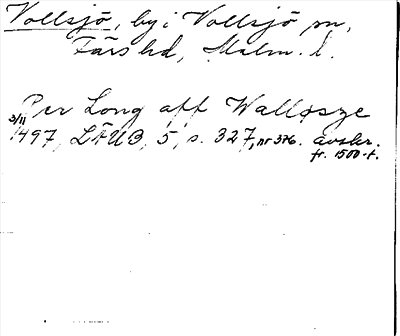 Vollsjö, by i Vollsjö sn,
Färs hd, Malm. l.
Per Long aff Walløsze
3/11 1497, LÄUB, 5, s. 327, nr 376. avskr.
fr. 1500-t.